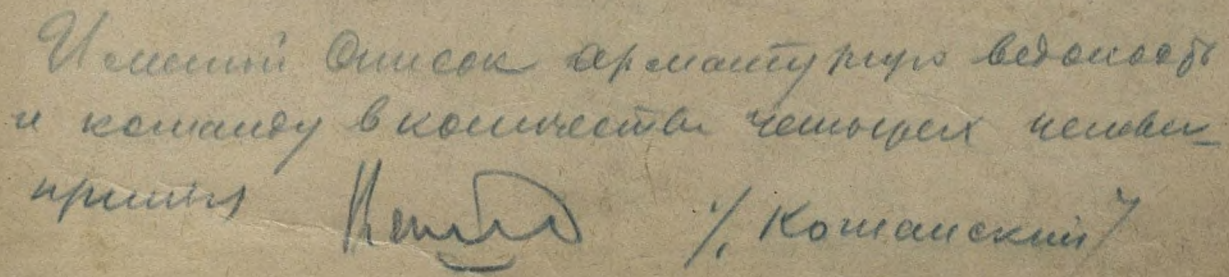 Именной Список арматурную ведомость
и команду в количестве четырех человек
принял /Кошанский/